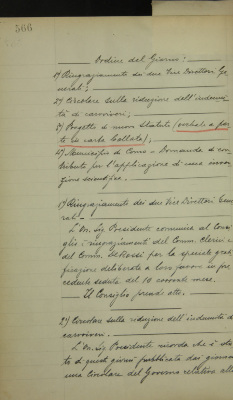 566
Ordine del Giorno:
1º) Ringraziamento dei due Vice Direttori Ge
nerali;
2º) Circolare sulla riduzione dell'indenni
tà di caroviveri;
3º) Progetto di nuovo Statuto (verbale a par
te in carta bollata);
4º) Municipio di Como - Domanda di con
tributo per l'applicazione d'una inven
zione scientifica.
1º) Ringraziamento dei due Vice Direttori Gene
rali.
L'On. Sig. Presidente comunica al Consi
glio i ringraziamenti del Comm. Clerici e
del Comm. per la speciale grati
ficazione deliberata a loro favore in pre
cedente seduta del 10 corrente mese.
Il Consiglio prende atto.
2º) Circolare sulla riduzione dell'indennità di
caroviveri.
L'On. Sig. Presidente ricorda che è sta
ta di questi giorni pubblicata dai giornali
una circolare del Governo relativa alla